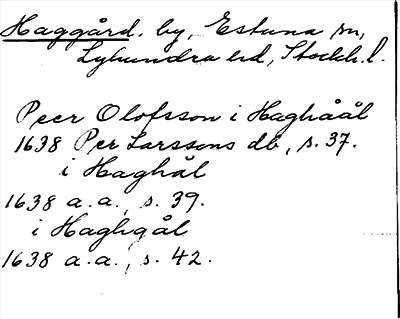 Haggård. by, Estuna sn,
Lyhundra hd, Stockh. l.
Peer Olofsson i Haghåål
1638 Per Larssons db, s. 37.
i Haghål
1638 a.a., s. 39.
i Haghgål
1638 a.a., s. 42.